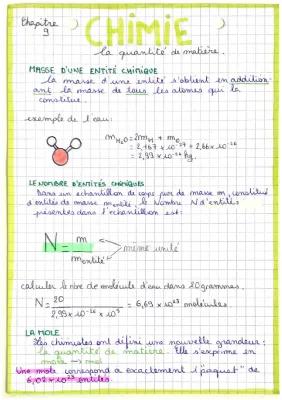 Chapitre
9
CHIMIE
La quantité de matière.
MASSE D'UNE ENTITÉ CHIMIQUE
La masse d'une entité s'obtient en addition-
ant la masse de tous les atomes qui la
constitue.
exemple de l'eau:
mH2O = 2mH + mO
= 2,99 x 10⁻²⁶ kg.
LE NOMBRE D'ENTITÉS CHIMIQUES
Dans un échantillon de corps pur de masse m, constitué
d'entités de masse mentité, le Nombre N d'entités
présentes dans l'échantillon est:
N = m
mentité
même unité
calculer le nbre de molécule d'eau dans 20 grammes.
N = 20
2,99 x 10⁻²⁶ x 10³
= 6,69 x 10²³ molécules.
LA MOLE
Les chimistes ont défini une nouvelle grandeur:
la quantité de matière. Elle s'exprime en
mole → mol
Une mole correspond a exactement 1 "paquet" de
6,02 x 10²³ entités.